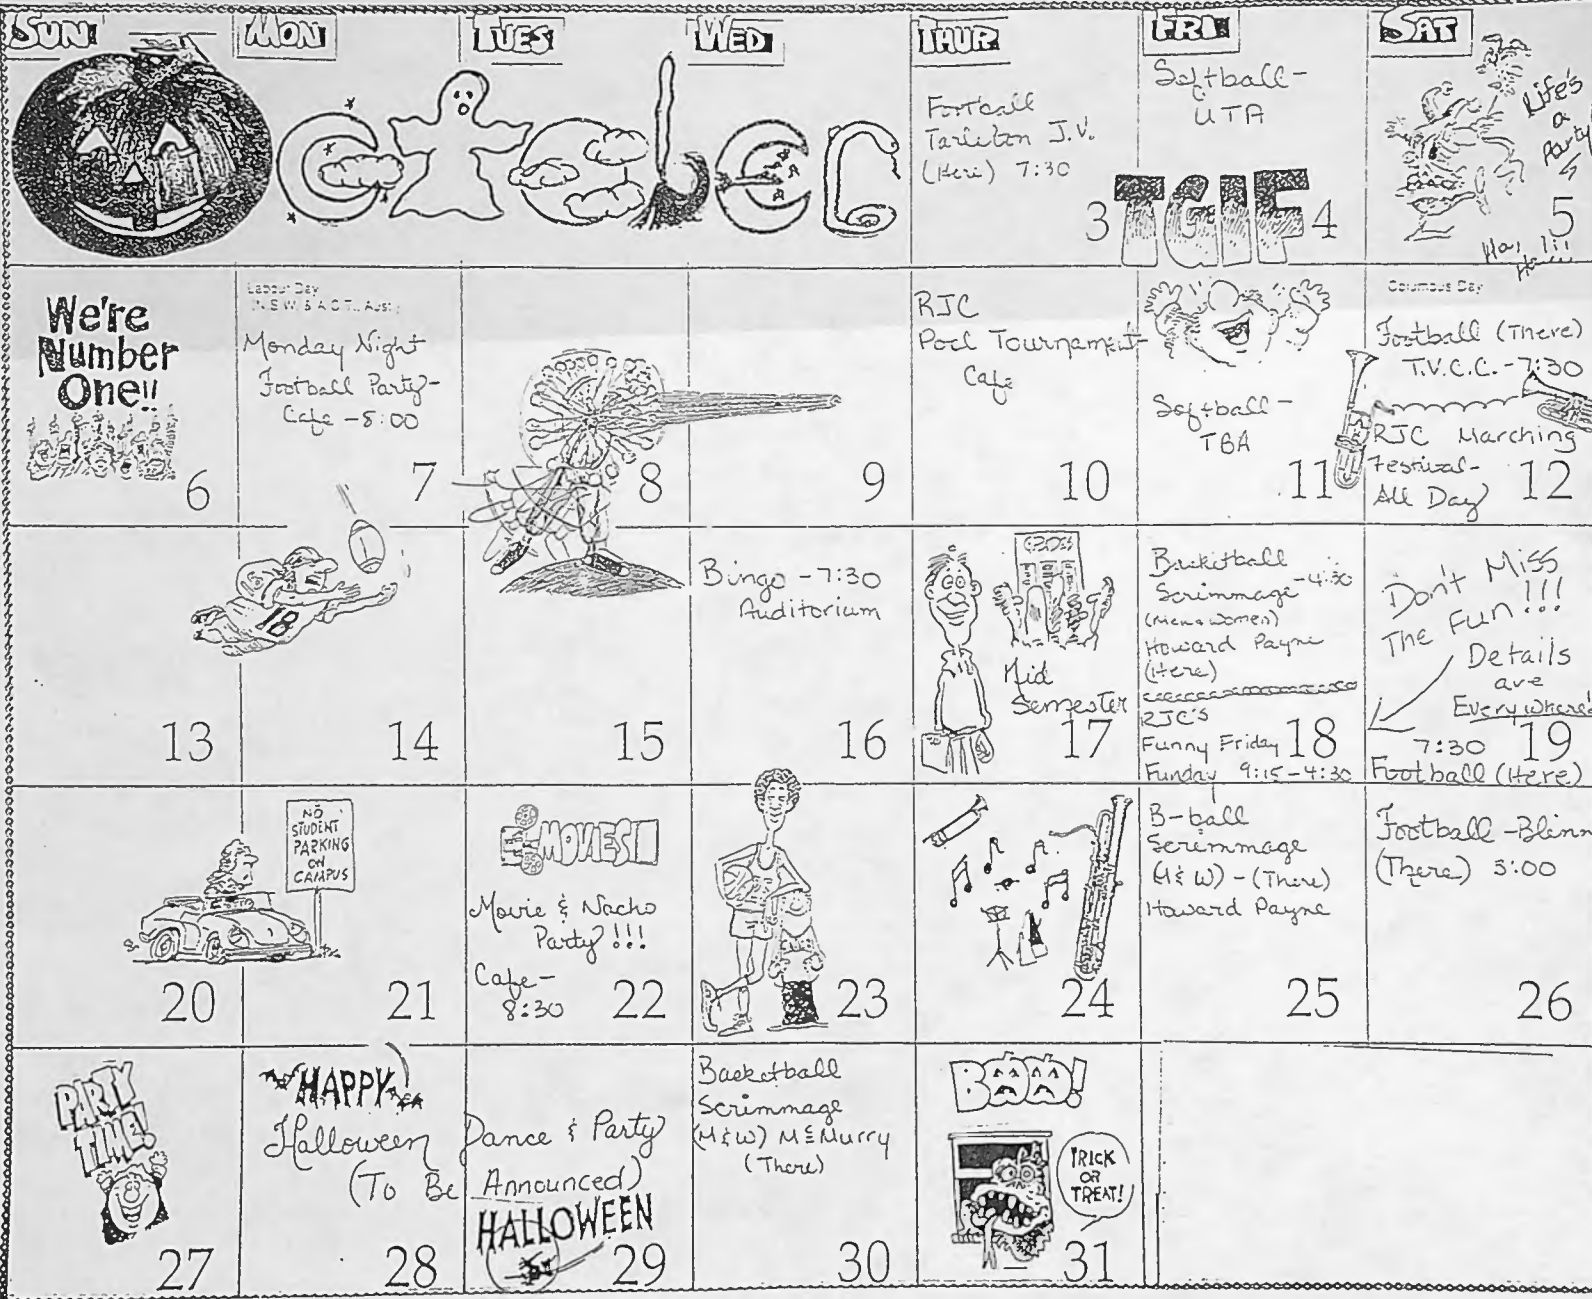 SUN MON TUES WED THUR FRI SAT
October
Football
Tarleton J.V.
(Here) 7:30
3
Softball -
UTA
TGIF 4
Life's
a
Party
5
We're
Number
One!!
6
Labour Day
(N.S.W. & A.C.T., Aust.)
Monday Night
Football Party -
Cafe - 8:00
7
8
9
RJC
Pool Tournament
Cafe
10
Softball -
TBA
11
Columbus Day
Football (There)
T.V.C.C. - 7:30
RJC Marching
Festival -
All Day
12
13
18
14
15
Bingo - 7:30
Auditorium
16
GRADES
Mid
Semester
17
Basketball
Scrimmage - 4:30
(Men & Women)
Howard Payne
(Here)
RJC's
Funny Friday
Funday 9:15 - 4:30
18
Don't Miss
The Fun!!!
Details
are
Everywhere!
7:30
Football (Here)
19
20
NO
STUDENT
PARKING
ON
CAMPUS
21
MOVIES
Movie & Nacho
Party!!!
Cafe -
8:30
22
23
24
B-ball
Scrimmage
(M & W) - (There)
Howard Payne
25
Football - Blinn
(There) 3:00
26
PARTY
TIME!
27
HAPPY
Halloween Dance & Party
(To Be Announced)
28
HALLOWEEN
29
Basketball
Scrimmage
(M & W) McMurry
(There)
30
BOO!
TRICK
OR
TREAT!
31